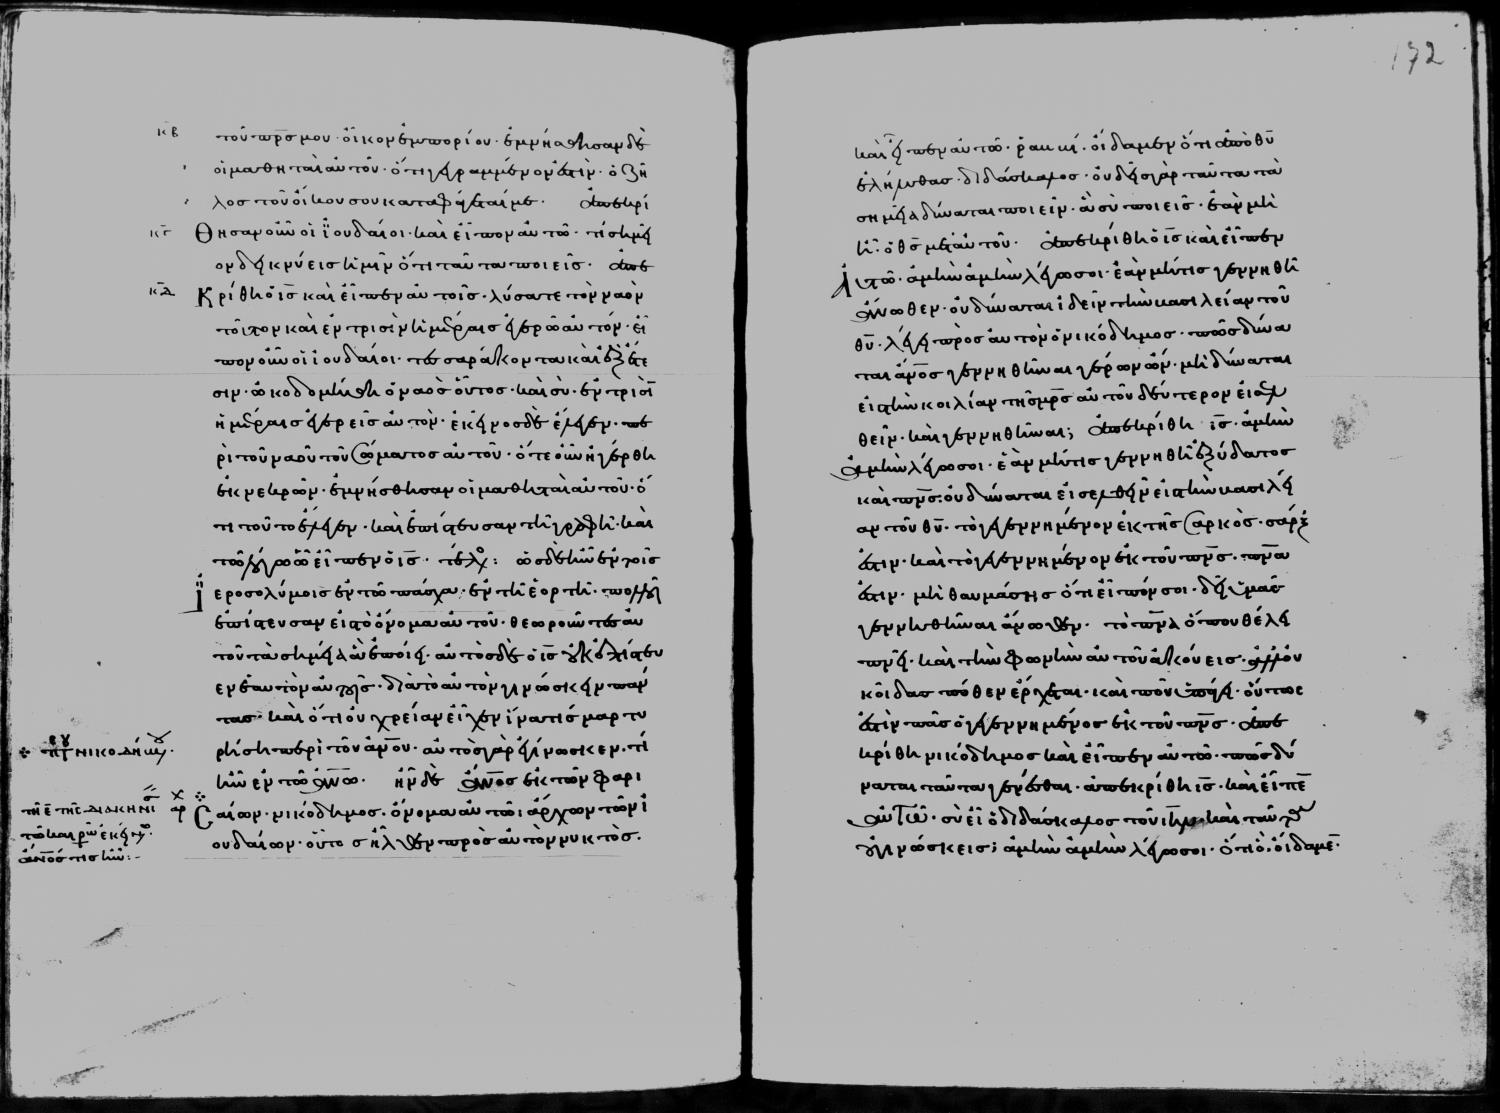 κβ τοῦ πρ̅σ μου· οἶκον ἐμπορίου· ἐμνήσθησαν δὲ
οἱ μαθηταὶ αὐτοῦ· ὅτι γεγραμμένον ἐστίν· ὁ ζῆ
λος τοῦ οἴκου σου καταφάγεταί με· ἀπεκρί
κγ Θησαν οὖν οἱ ϊουδαῖοι· καὶ εἶπον αὐτῶ· τί σημεῖ
ον δεικνύεις ἡμῖν ὅτι ταῦτα ποιεῖς· ἀπε
κδ Κρίθη ὁ ι̅σ καὶ εἶπεν αὐτοῖς· λύσατε τὸν ναὸν
τοῦτον καὶ ἐν τρισὶν ἡμέραις ἐγερῶ αὐτόν· εἶ
πον οὖν οἱ ϊουδαῖοι· τεσσαράκοντα καὶ ἓξ ἔτε
σιν· ὠκοδομήθη ὁ ναὸς οὗτος· καὶ σὺ· ἐν τρισὶ̅
ἡμέραις ἐγερεῖς αὐτόν· ἐκεῖνος δὲ ἔλεγεν· πε
ρὶ τοῦ ναοῦ τοῦ σώματος αὐτοῦ· ὅτε οὖν ἠγέρθη
ἐκ νεκρῶν· ἐμνήσθησαν οἱ μαθηταὶ αὐτοῦ· ὅ
τι τοῦτο ἔλεγεν· καὶ ἐπίστευσαν τῆ γραφῆ· καὶ
τῶ λόγω ὧ εἶπεν ὁ ι̅σ· τέλο: ὡς δὲ ἦν ἐν τοῖς
ϊεροσολύμοις ἐν τῶ πάσχα· ἐν τῆ ἑορτῆ· πολλοὶ
ἐπίστευσαν εἰς τὸ ὄνομα αὐτοῦ· θεωροῦντες αὐ
τοῦ τὰ σημεῖα ἃ ἐποίει· αὐτὸς δὲ ὁ ι̅σ οὐκ ἐπίστευ
εν ἑαυτὸν αὐτοῖς· διὰ τὸ αὐτὸν γινώσκειν πάν
τας· καὶ ὅτι οὐ χρείαν εἶχεν ἵνα τὶς μαρτυ
ρήση περὶ τοῦ ἀν̅ου· αὐτὸς γὰρ ἐγίνωσκεν· τί
ἦν ἐν τῶ ἀν̅ω· ἦν δὲ ἄν̅ος ἐκ τῶν φαρι
σαίων· νικόδημος· ὄνομα αὐτῶ ἄρχων τῶν ἰ
ουδαίων· οὗτος ἦλθεν πρὸς αὐτὸν νυκτὸς·
νικοδήμου·
τῆ ε̅ τῆς διακηνι
τῶ καιρῶ ἐκείνω·
ἄν̅ος τις ἦν:-
172
καὶ εἶπεν αὐτῶ· ῥαββί· οἴδαμεν ὅτι ἀπὸ θ̅υ
ἐλήλυθας· διδάσκαλος· οὐδεὶς γὰρ ταῦτα τὰ
σημεῖα δύναται ποιεῖν· ἃ σὺ ποιεῖς· ἐὰν μὴ
ἦ· ὁ θ̅σ μετ αὐτοῦ· ἀπεκρίθη ὁ ι̅σ καὶ εἶπεν
Αὐτῶ· ἀμὴν ἀμὴν λέγω σοι· ἐὰν μή τις γεννηθῆ
ἄνωθεν· οὐ δύναται ἰδεῖν τὴν βασιλείαν τοῦ
θ̅υ· λέγει πρὸς αὐτὸν ὁ νικόδημος· πῶς δύνα
ται ἄν̅ος γεννηθῆναι γέρων ὤν· μὴ δύναται
εἰς τὴν κοιλίαν τῆς μρ̅σ αὐτοῦ δεύτερον εἰσελ
θεῖν· καὶ γεννηθῆναι; ἀπεκρίθη ι̅σ· ἀμὴν
ἀμὴν λέγω σοι· ἐὰν μή τις γεννηθῆ ἐξ ὕδατος
καὶ πν̅σ· οὐ δύναται εἰσελθεῖν εἰς τὴν βασιλεί
αν τοῦ θ̅υ· τὸ γεγεννημένον ἐκ τῆς σαρκὸς· σάρξ
ἐστιν· καὶ τὸ γεγεννημένον ἐκ τοῦ πν̅σ· πν̅α
ἐστιν· μὴ θαυμάσης ὅτι εἶπόν σοι· δεῖ ὑμᾶς
γεννηθῆναι ἄνωθεν· τὸ πν̅α ὅπου θέλει
πνεῖ· καὶ τὴν φωνὴν αὐτοῦ ἀκούεις· ἀλλ οὐ
κ οἶδας πόθεν ἔρχεται· καὶ ποῦ ὑπάγει· οὕτως
ἐστὶν πᾶς ὁ γεγεννημένος ἐκ τοῦ πν̅σ· ἀπε
κρίθη νικόδημος καὶ εἶπεν αὐτῶ· πῶς δύ
ναται ταῦτα γενέσθαι· ἀπεκρίθη ι̅σ· καὶ εἶπε̅
αὐτῶ· σὺ εἶ ὁ διδάσκαλος τοῦ ιη̅λ· καὶ ταῦτα οὐ
γινώσκεις; ἀμὴν ἀμὴν λέγω σοι· ὅτι ὃ οἴδαμε̅·